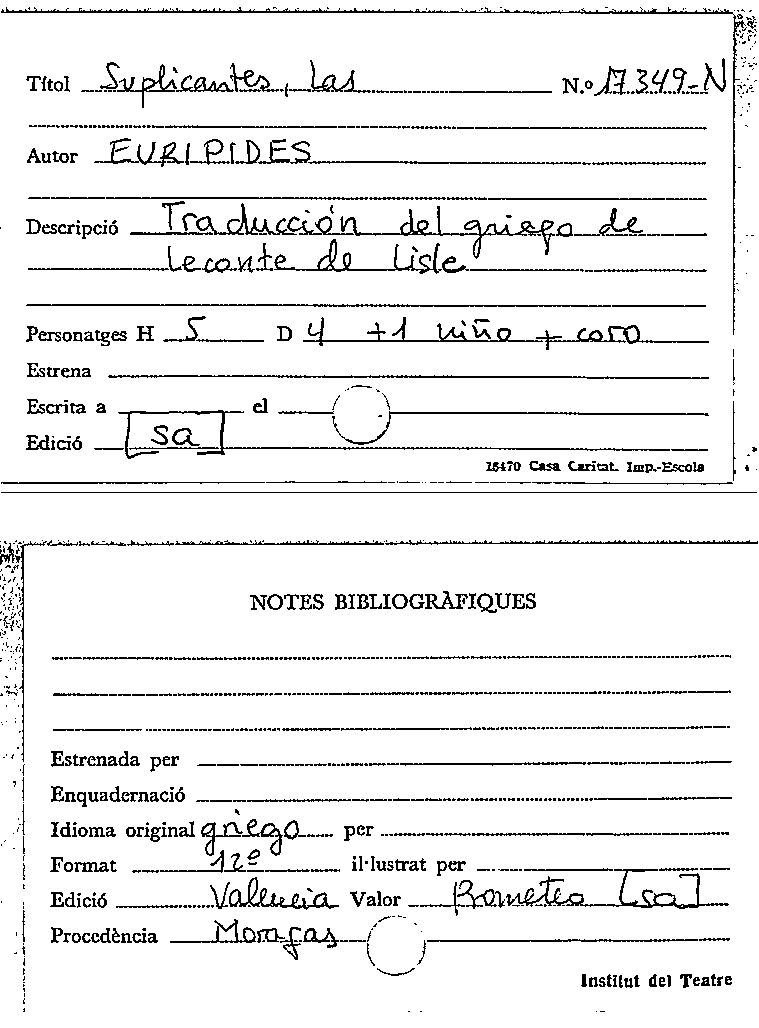 Títol Suplicantes, Las N.º 17349-N
Autor EURIPIDES
Descripció Traducción del griego de
Leconte de Lisle
Personatges H 5 D 4 +1 niño + coro
Estrena
Escrita a el
Edició [sa]
15470 Casa Caritat. Imp.-Escola
NOTES BIBLIOGRÀFIQUES
Estrenada per
Enquadernació
Idioma original griego per
Format 12º il·lustrat per
Edició Valencia Valor Prometeo [sa]
Procedència Moragas
Institut del Teatre